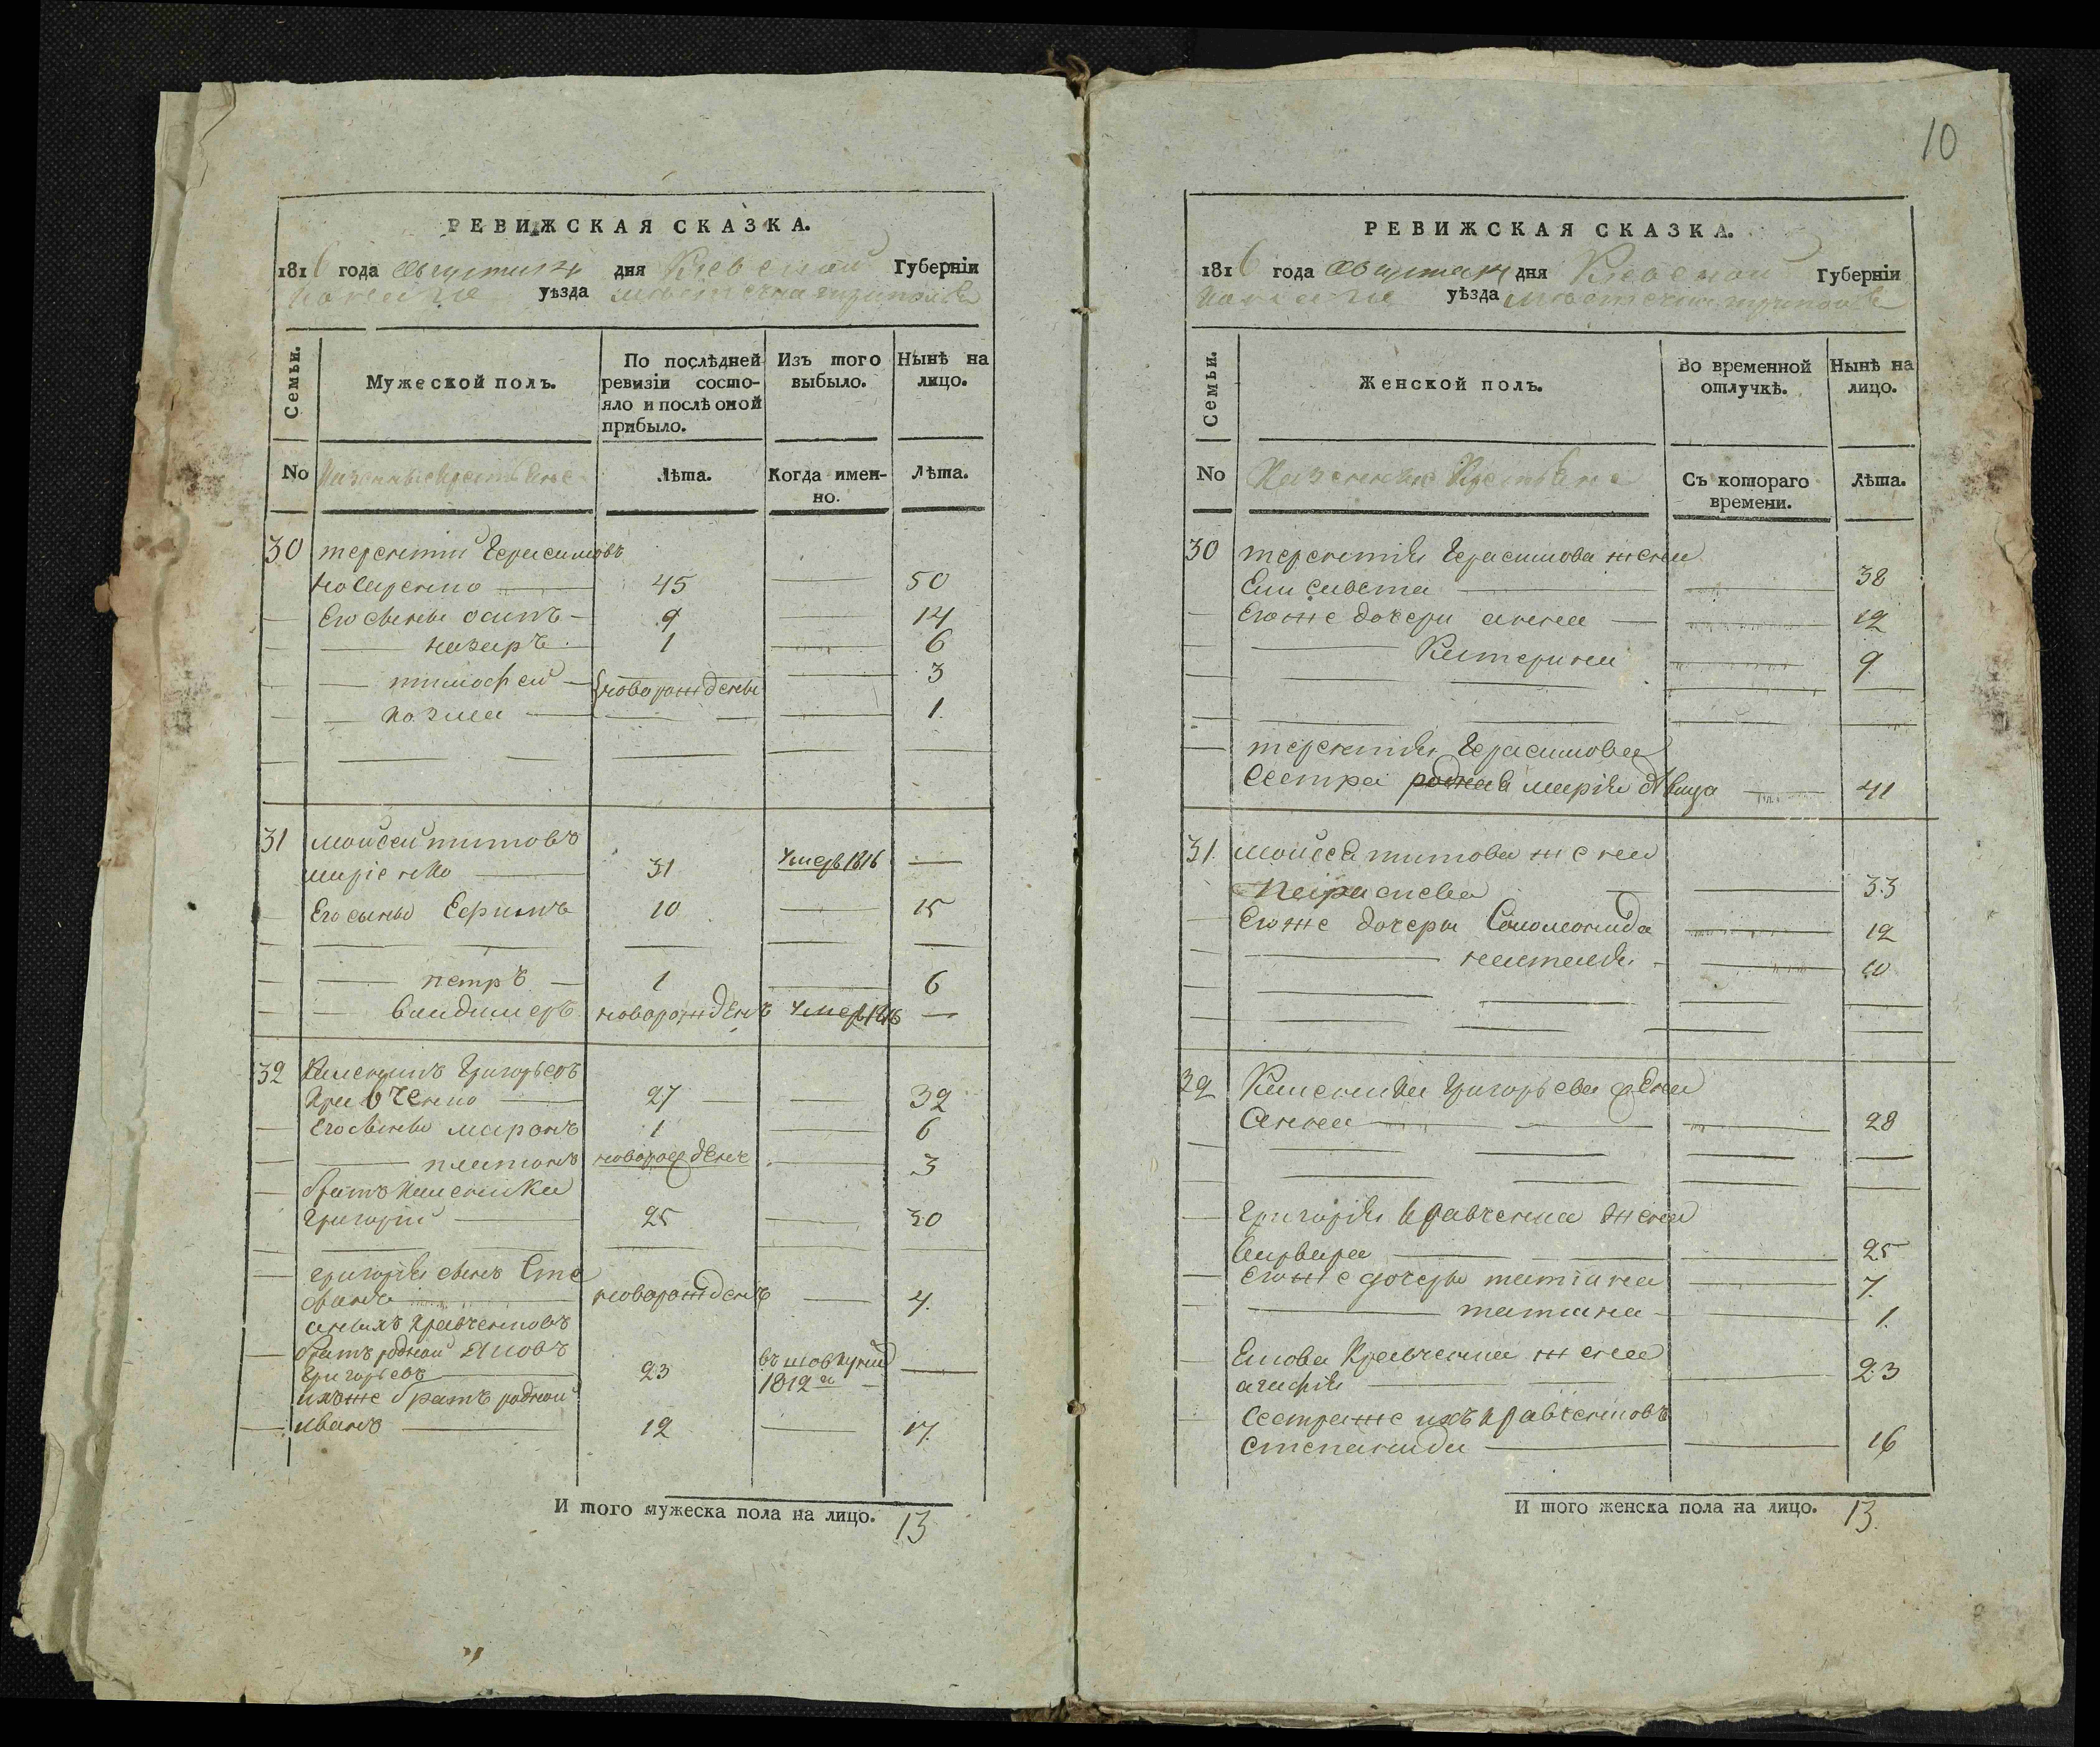 10
РЕВИЖСКАЯ СКАЗКА.
1816 года августа дня Киевской Губерніи
уѣзда местечка триполья
Семьи.
Мужеской полъ.
По послѣдней ревизіи состо-
яло и послѣ оной прибыло.
Изъ того выбыло.
Нынѣ на лицо.
No Казенные Крестьяне
Лѣта.
Когда имен-
но.
Лѣта.
30 терентий Герасимовъ
45 50
Его сыновья осипъ 9 14
назаръ 1 6
тимофей новорожденны 3
козма 1.
31 мойсей титовъ
31 умеръ 1816
Его сыны Ефимъ 10 15
петръ 1 6
владимеръ новорожденъ умеръ 1816
32 Климентъ Григорьевъ
Кравченко 27 32
Его сыновья миронъ 1 6
платонъ новорожденъ 3
братъ
григорий 25 30
григорія сынъ Сте
фанъ новорожденъ 4.
Кравченковъ
братъ родной Яковъ
Григорьевъ 23 1812
ихъ же братъ родной
иванъ 12 17.
И того мужеска пола на лицо. 13
РЕВИЖСКАЯ СКАЗКА.
1816 года августа дня Киевской Губерніи
уѣзда местечка триполья
Семьи.
Женской полъ.
Во временной отлучкѣ.
Нынѣ на лицо.
No Казенные Крестьяне
Съ котораго времени.
Лѣта.
30 терентія Герасимова жена
Елисавета 38
Его же дочери анна 12
Катерина 9
терентія Герасимова
Сестра родная марія дѣвица 41
31. мойсея титова жена
Параскева 33
Его же дочери Соломонида 12
наталія 10
32 Григорьева жена
Анна 28
григорія кравченка жена
варвара 25
его же дочеры татіана 7.
татіана 1.
Якова Кравченка жена
агафія 23
Сестра же ихъ кравченковъ
степанида 16
И того женска пола на лицо. 13.